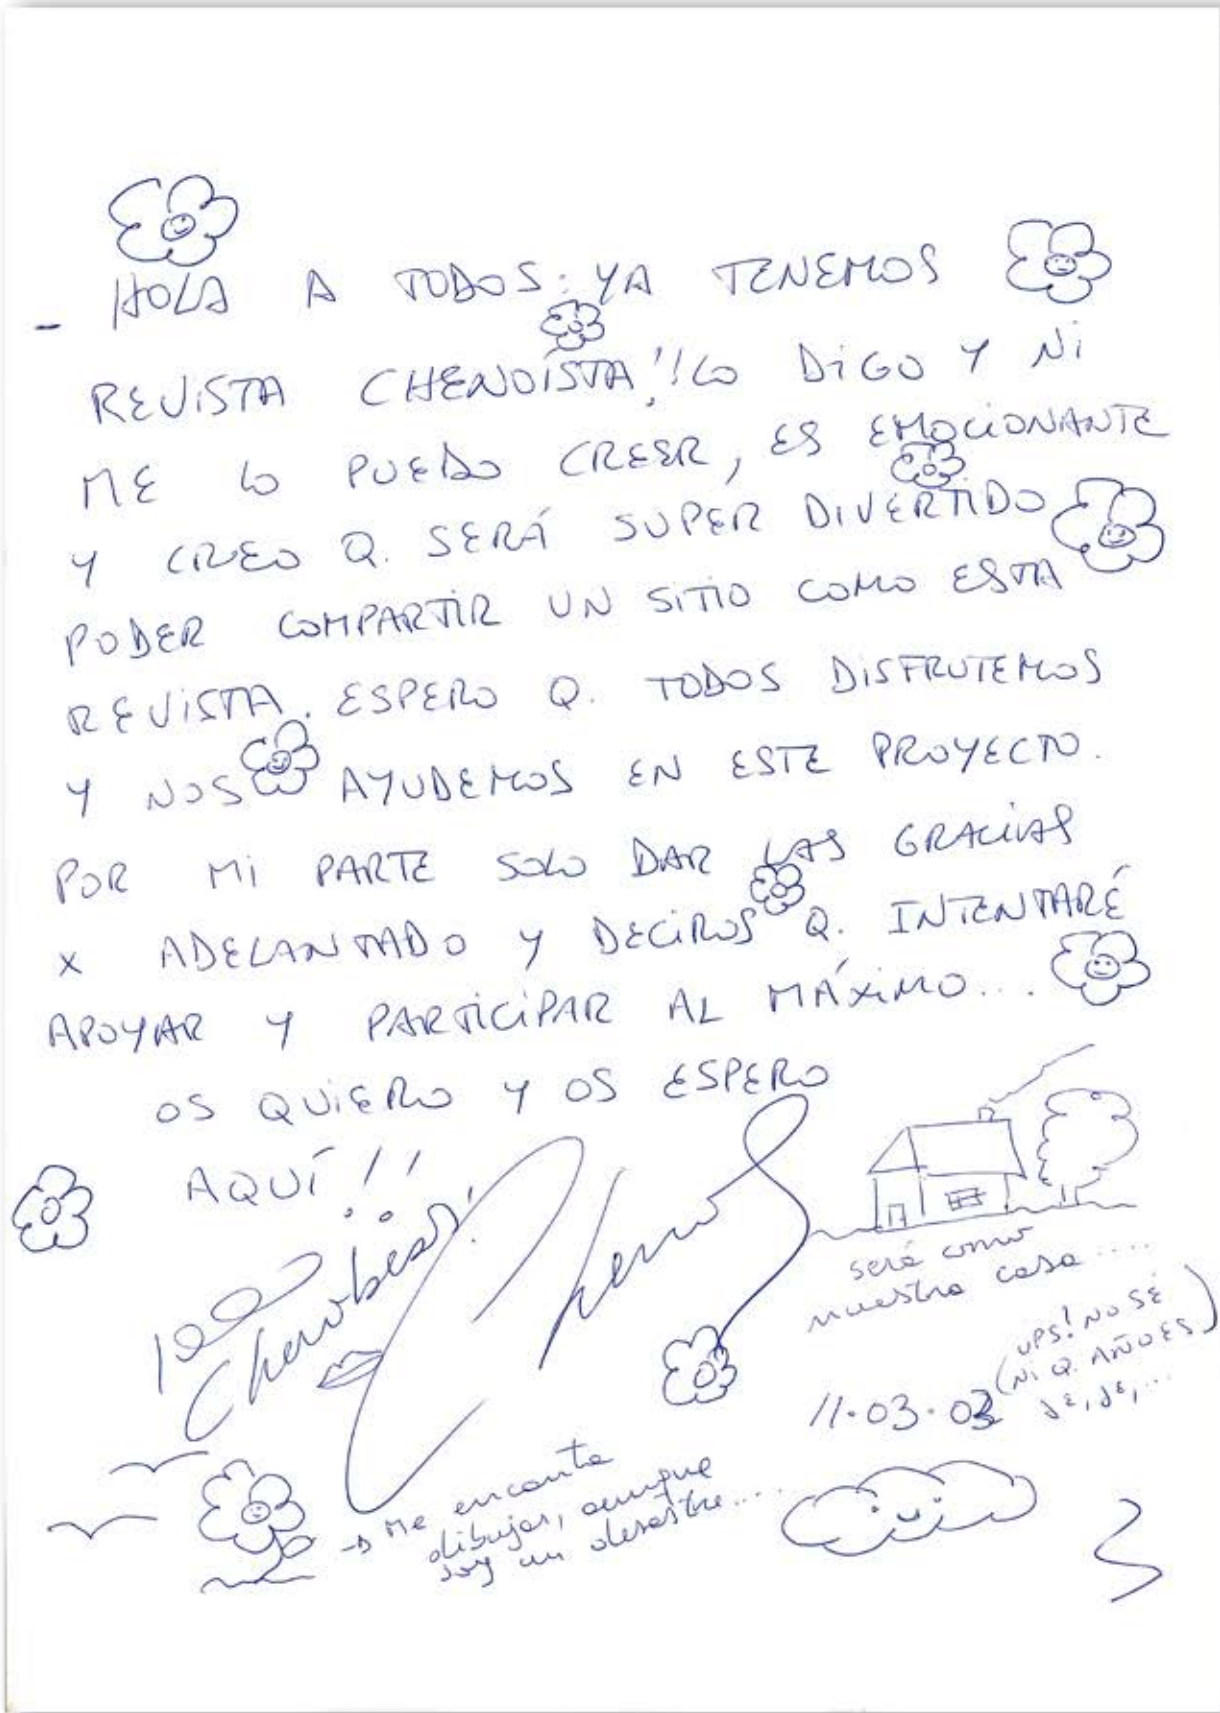 - HOLA A TODOS: YA TENEMOS
REVISTA CHENOÍSTA!! LO DIGO Y NI
ME LO PUEDO CREER, ES EMOCIONANTE
Y CREO Q. SERÁ SUPER DIVERTIDO
PODER COMPARTIR UN SITIO COMO ESTA
REVISTA. ESPERO Q. TODOS DISFRUTEMOS
Y NOS AYUDEMOS EN ESTE PROYECTO.
POR MI PARTE SOLO DAR LAS GRACIAS
X ADELANTADO Y DECIROS Q. INTENTARÉ
APOYAR Y PARTICIPAR AL MÁXIMO...
OS QUIERO Y OS ESPERO
AQUÍ!!
100
Chenobesos!
Chenoa
será como
nuestra casa....
11.03.03
(UPS! NO SÉ
NI Q. AÑO ES)
JE, JE,...
→ Me encanta
dibujar, aunque
soy un desastre....